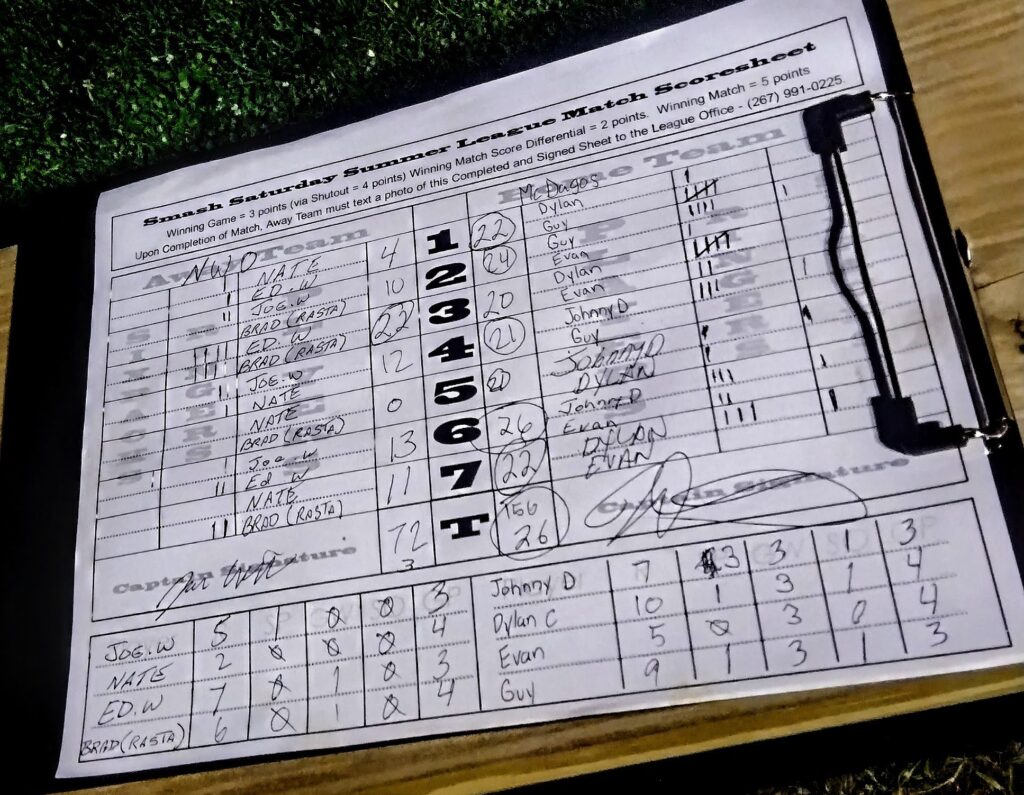 Smash Saturday Summer League Match Scoresheet
Winning Game = 3 points (via Shutout = 4 points) Winning Match Score Differential = 2 points. Winning Match = 5 points
Upon Completion of Match, Away Team must text a photo of this Completed and Signed Sheet to the League Office - (267) 991-0225
Away Team Home Team
NWO McDagos
NATE 4 1 22 Dylan
ED.W Guy
JOE.W 10 2 24 Guy
BRAD (RASTA) Evan
ED. W 22 3 20 Dylan
BRAD (RASTA) Evan
JOE.W 12 4 21 Johnny D
NATE Guy
NATE 0 5 21 JOHNNY D
BRAD (RASTA) DYLAN
Joe W 13 6 26 Johnny D
Ed W Evan
NATE 11 7 22 DYLAN
BRAD (RASTA) EVAN
72 T 156
3 26
Captain Signature Captain Signature
JOE.W 5 1 0 0 3 Johnny D 7 3 3 1 3
NATE 2 0 0 0 4 Dylan C 10 1 3 1 4
ED.W 7 0 1 0 3 Evan 5 0 3 0 4
BRAD (RASTA) 6 0 1 0 4 Guy 9 1 3 1 3